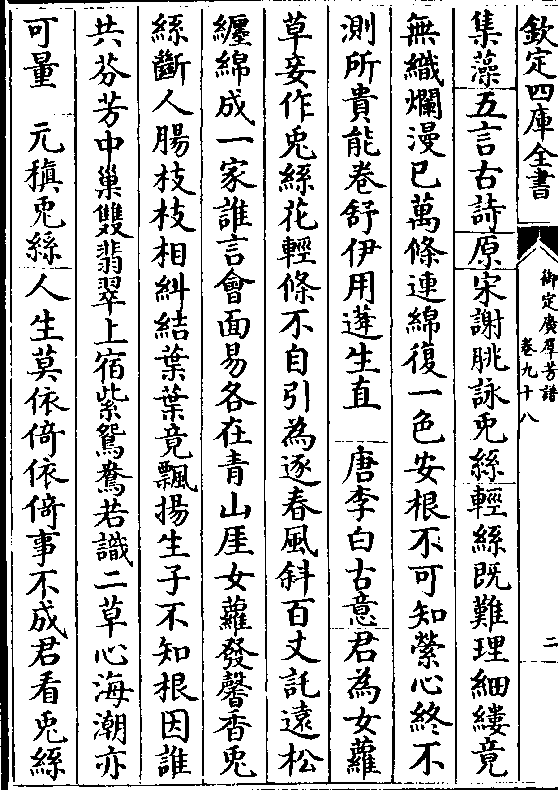 欽定四庫全書
御定廣羣芳譜
卷九十八
二
集藻五言古詩原宋謝朓詠兎絲輕絲既難理細縷竟
無織爛漫已萬條連綿復一色安根不可知縈心終不
測所貴能卷舒伊用蓬生直　唐李白古意君為女蘿
草妾作兎絲花輕條不自引為逐春風斜百丈託遠松
纏綿成一家誰言會面易各在青山厓女蘿發馨香兎
絲斷人腸枝枝相糾結葉葉竟飄揚生子不知根因誰
共芬芳中巢雙翡翠上宿紫鴛鴦若識二草心海潮亦
可量　元稹兎絲人生莫依倚依倚事不成君看兎絲